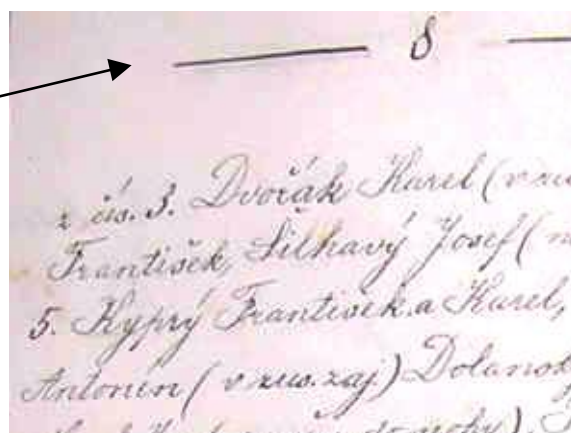 8
z čís. 3. Dvořák Karel (v rus
František, Šilhavý Josef (
5. Kyprý František a Karel,
Antonín (v rus. zaj.) Dolansk
do nohy),